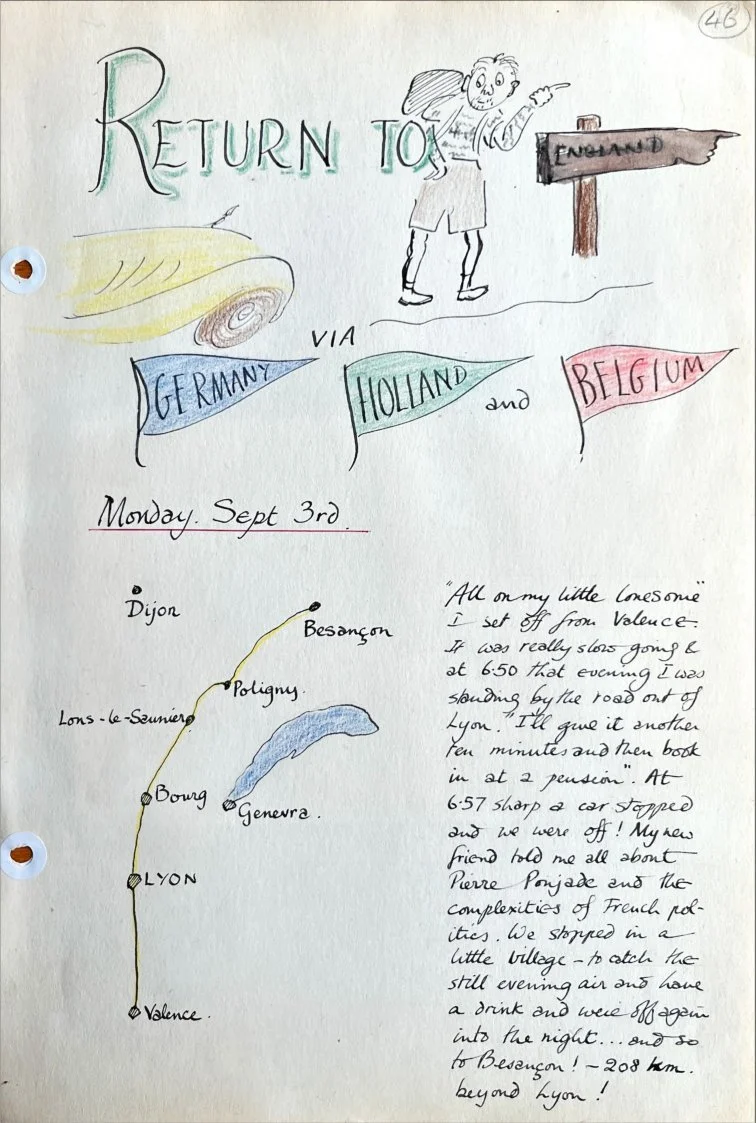 46
RETURN TO
ENGLAND
VIA
GERMANY
HOLLAND
and
BELGIUM
Monday. Sept 3rd.
Dijon
Besançon
Poligny.
Lons-le-Saunier
Bourg
Genevra.
LYON
Valence.
"All on my little lonesome"
I set off from Valence.
It was really slow going &
at 6.50 that evening I was
standing by the road out of
Lyon. "I'll give it another
ten minutes and then book
in at a pension". At
6.57 sharp a car stopped
and we were off! My new
friend told me all about
Pierre Ponjade and the
complexities of French pol-
itics. We stopped in a
little village - to catch the
still evening air and have
a drink and were off again
into the night... and so
to Besançon! - 208 km.
beyond Lyon!